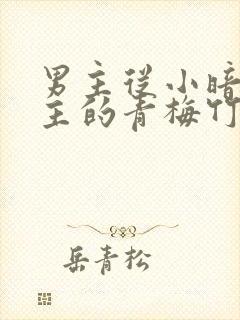 男主从小暗
主的青梅竹
岳青松